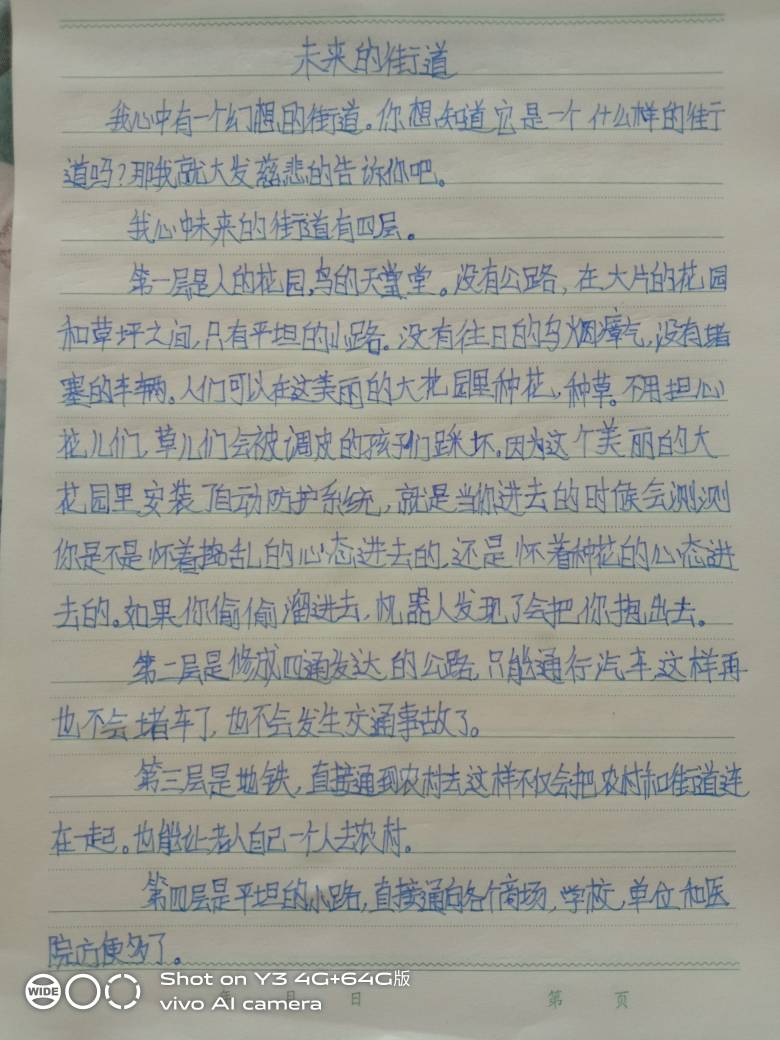 未来的街道
我心中有一个幻想的街道。你想知道它是一个什么样的街
道吗?那我就大发慈悲的告诉你吧。
我心中未来的街道有四层。
第一层是人的花园,鸟的天堂。没有公路,在大片的花园
和草坪之间,只有平坦的小路。没有往日的乌烟瘴气,没有堵
塞的车辆。人们可以在这美丽的大花园里种花,种草。不用担心
花儿们,草儿们会被调皮的孩子们踩坏。因为这个美丽的大
花园里安装了自动防护系统,就是当你进去的时候会测测
你是不是怀着捣乱的心态进去的,还是怀着种花的心态进
去的。如果你偷偷溜进去,机器人发现了会把你抱出去。
第二层是修成四通发达的公路,只能通行汽车,这样再
也不会堵车了,也不会发生交通事故了。
第三层是地铁,直接通到农村去这样不仅会把农村和街道连
在一起。也能让老人自己一个人去农村。
第四层是平坦的小路,直接通向各个商场,学校,单位和医
院方便多了。
WIDE
Shot on Y3 4G+64G版
vivo AI camera
年 月 日 第 页